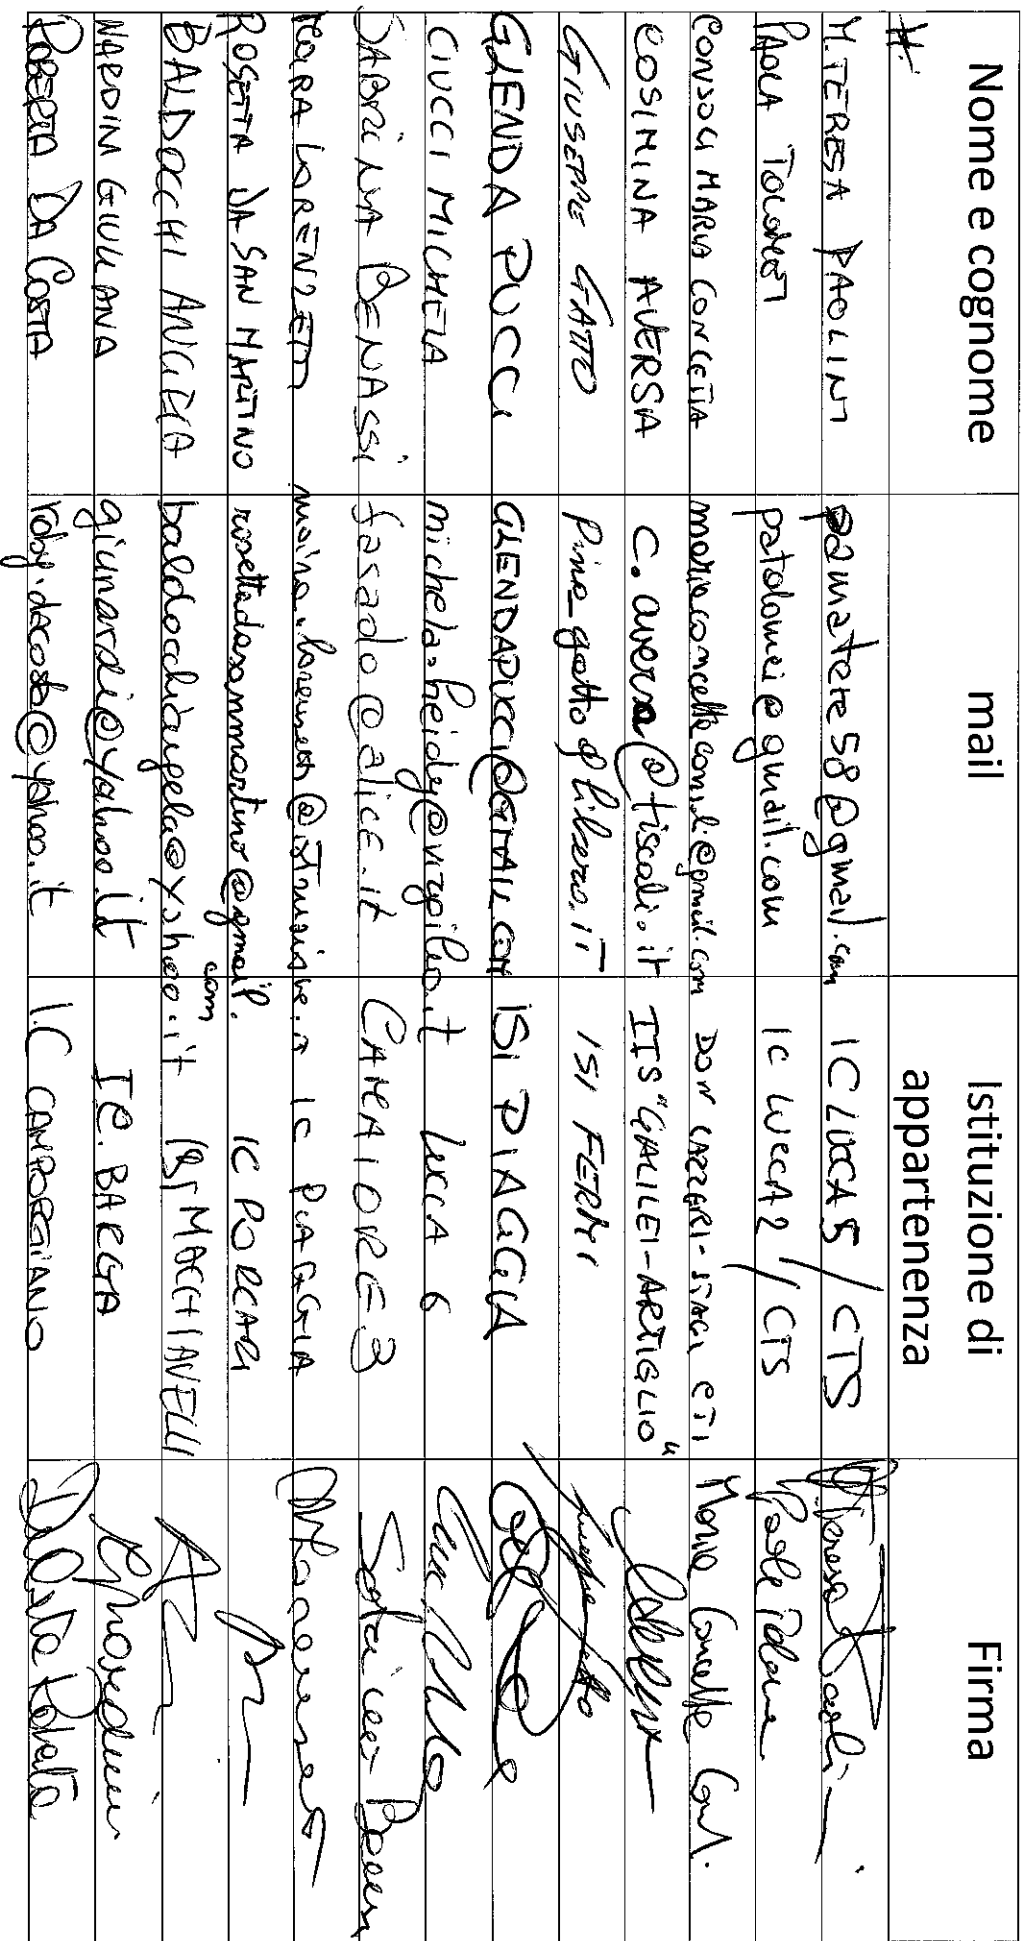 Nome e cognome mail Istituzione di appartenenza Firma
M. TERESA PAOLINI pamatere58@gmail.com IC LUCCA 5 / CTS
PAOLA TOLOMEI patolomei@gmail.com IC LUCCA 2 / CTS
CONSOLI MARIA CONCETTA mariaconcettaconsoli@gmail.com DON LAZZERI-STAGI
COSIMINA AVERSA c.aversa@tiscali.it ITS "GALILEI-ARTIGLIO"
GIUSEPPE GATTO pino_gatto@libero.it ISI FERMI
GLENDA PUCCI GLENDAPUCCI@GMAIL.COM ISI PIAGGIA
CIUCCI MICHELA michela-heidy@virgilio.it LUCCA 6
SABRINA BENASSI fasado@alice.it CAMAIORE 3 Sabrina
MAIRA LORENZETTI IC PIAGGIA
ROSETTA DA SAN MARTINO rosettadasanmartino@gmail.com IC PORCARI
BALDOCCHI ANGELA baldocchiangela@yahoo.it ISI MACHIAVELLI
NARDINI GIULIANA giunardi@yahoo.it IC. BARGA
ROBERTA DA COSTA roby.dacosta@yahoo.it I.C CAMPORGIANO Da Costa Roberta